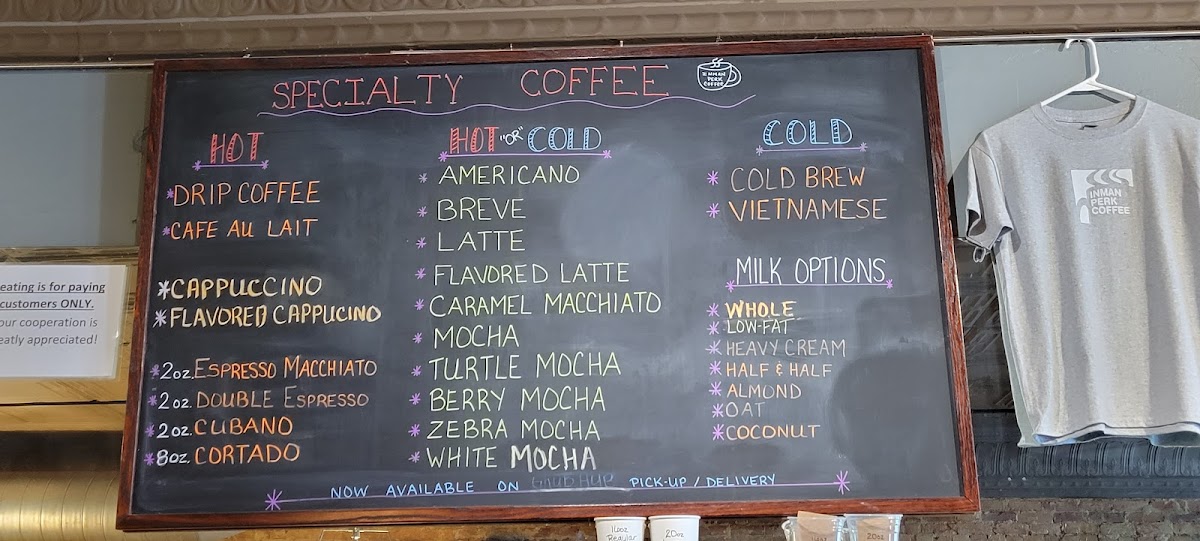 SPECIALTY COFFEE
INMAN
PERK
COFFEE
HOT
* DRIP COFFEE
* CAFE AU LAIT
* CAPPUCCINO
* FLAVORED CAPPUCINO
* 2oz. ESPRESSO MACCHIATO
* 2oz. DOUBLE ESPRESSO
* 2oz. CUBANO
* 8oz. CORTADO
HOT "OR" COLD
* AMERICANO
* BREVE
* LATTE
* FLAVORED LATTE
* CARAMEL MACCHIATO
* MOCHA
* TURTLE MOCHA
* BERRY MOCHA
* ZEBRA MOCHA
* WHITE MOCHA
COLD
* COLD BREW
* VIETNAMESE
MILK OPTIONS
* WHOLE
* LOW-FAT
* HEAVY CREAM
* HALF & HALF
* ALMOND
* OAT
* COCONUT
NOW AVAILABLE ON GRUBHUB PICK-UP / DELIVERY
eating is for paying
customers ONLY.
our cooperation is
eatly appreciated!
INMAN
PERK
COFFEE
16oz
Regular
20oz
20oz